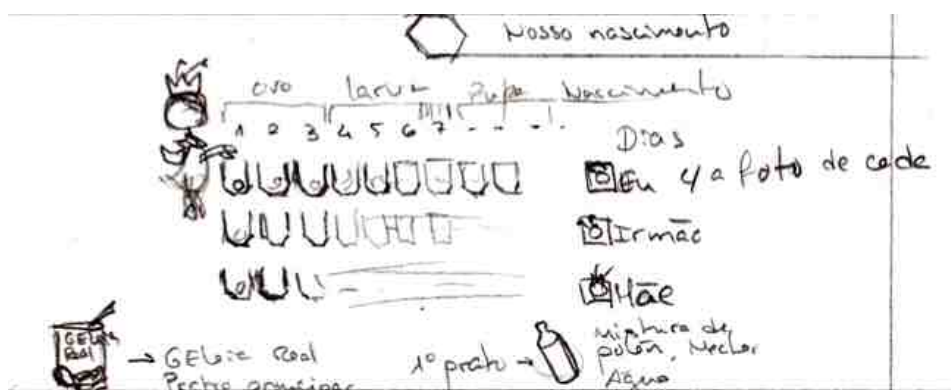 Nosso nascimento
ovo larva Pupa Nascimento
1 2 3 4 5 6 7 - - - .
Dias
Eu 4 a foto de cada
Irmão
Mãe
GEleia Real
→ GEleia Real
1º prato →
Mistura de
polén, Nectar
Agua